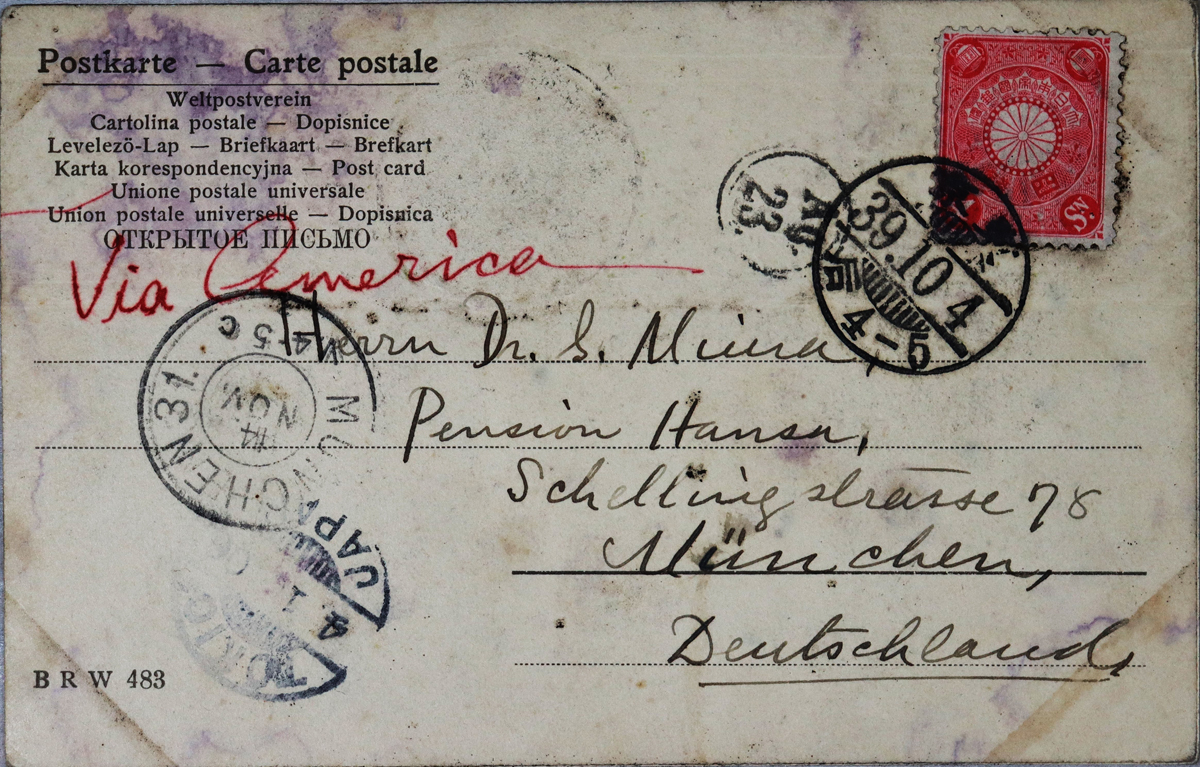 Postkarte — Carte postale
Weltpostverein
Cartolina postale — Dopisnice
Levelezö-Lap — Briefkaart — Brefkart
Karta korespondencyjna — Post card
Unione postale universale
Union postale universelle — Dopisnica
ОТКРЫТОЕ ПИСЬМО
Via America
Herrn Dr. S. Miura,
Pension Hansa,
Schellingstrasse 78
München,
Deutschland,
39.10 4
4-5
23.
MÜNCHEN 31.
4-5
NOV.
JAPAN
Sn.
B R W 483